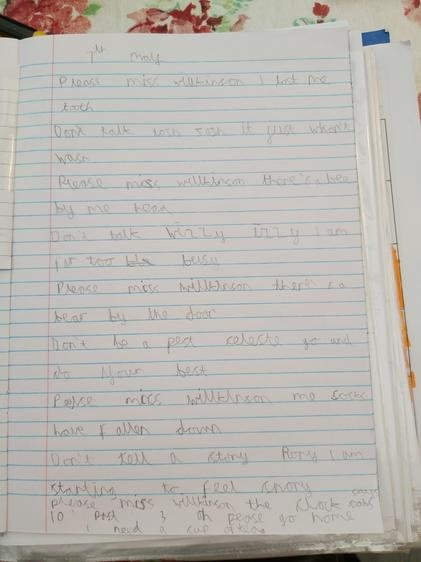 7th May
Please miss willkinson I lost me
tooth
Don't talk tosh Josh it just whon't
wash
Please miss willkinson there's a bee
by me head
Don't talk wizzy izzy I am
just too busy
Please miss willkinson there is a
bear by the door
Don't be a pest celeste go and
do your best
Please miss willkinson me socks
have fallen down
Don't tell a story Rory I am
starting to feel snory
please miss wilkinson the clock says
10 past 3 oh pease go home
I need a cup of tea